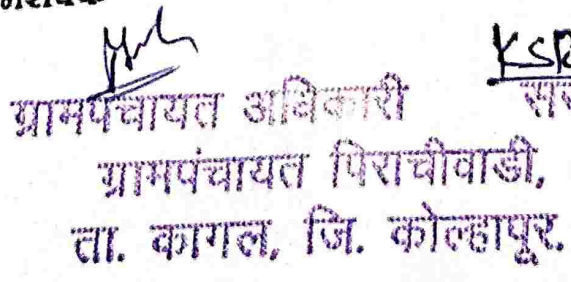 KSP
ग्रामपंचायत अधिकारी सर
ग्रामपंचायत पिराचीवाडी,
ता. कागल, जि. कोल्हापूर.